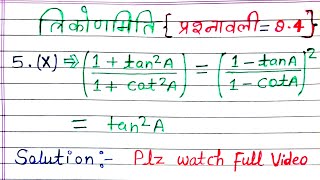 त्रिकोणमिति { प्रश्नावली = 8.4 }
5.(X) ⇒ (1 + tan²A / 1 + cot²A) = (1 - tanA / 1 - cotA)²
= tan²A
Solution:- Plz watch Full Video